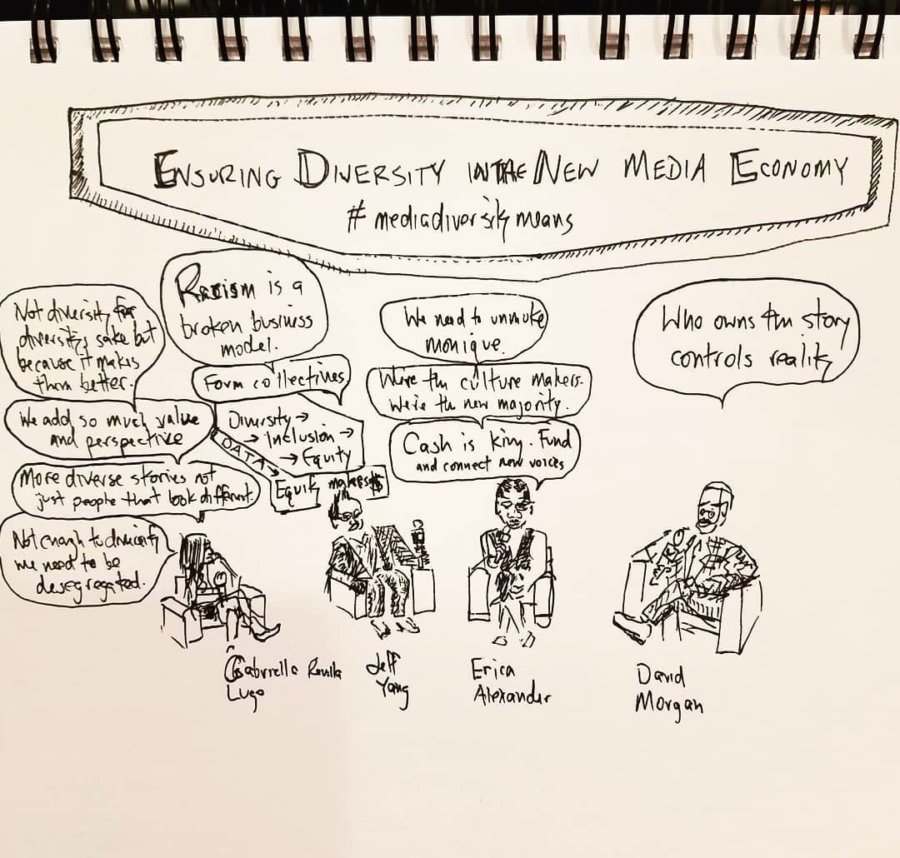 ENSURING DIVERSITY IN THE NEW MEDIA ECONOMY
#mediadiversitymeans
Not diversity for
diversity's sake but
because it makes
them better.
We add so much value
and perspective
More diverse stories not
just people that look different
Not enough to diversify
we need to be
desegregated.
Racism is a
broken business
model.
Form collectives
Diversity →
→ Inclusion →
→ Equity
DATA
Equity makes $
We need to unmute
monique.
We're the culture makers.
We're the new majority.
Cash is king. Fund
and connect new voices
Who owns the story
controls reality
Gabrielle
Lugo
Jeff
Yang
Erica
Alexander
David
Morgan